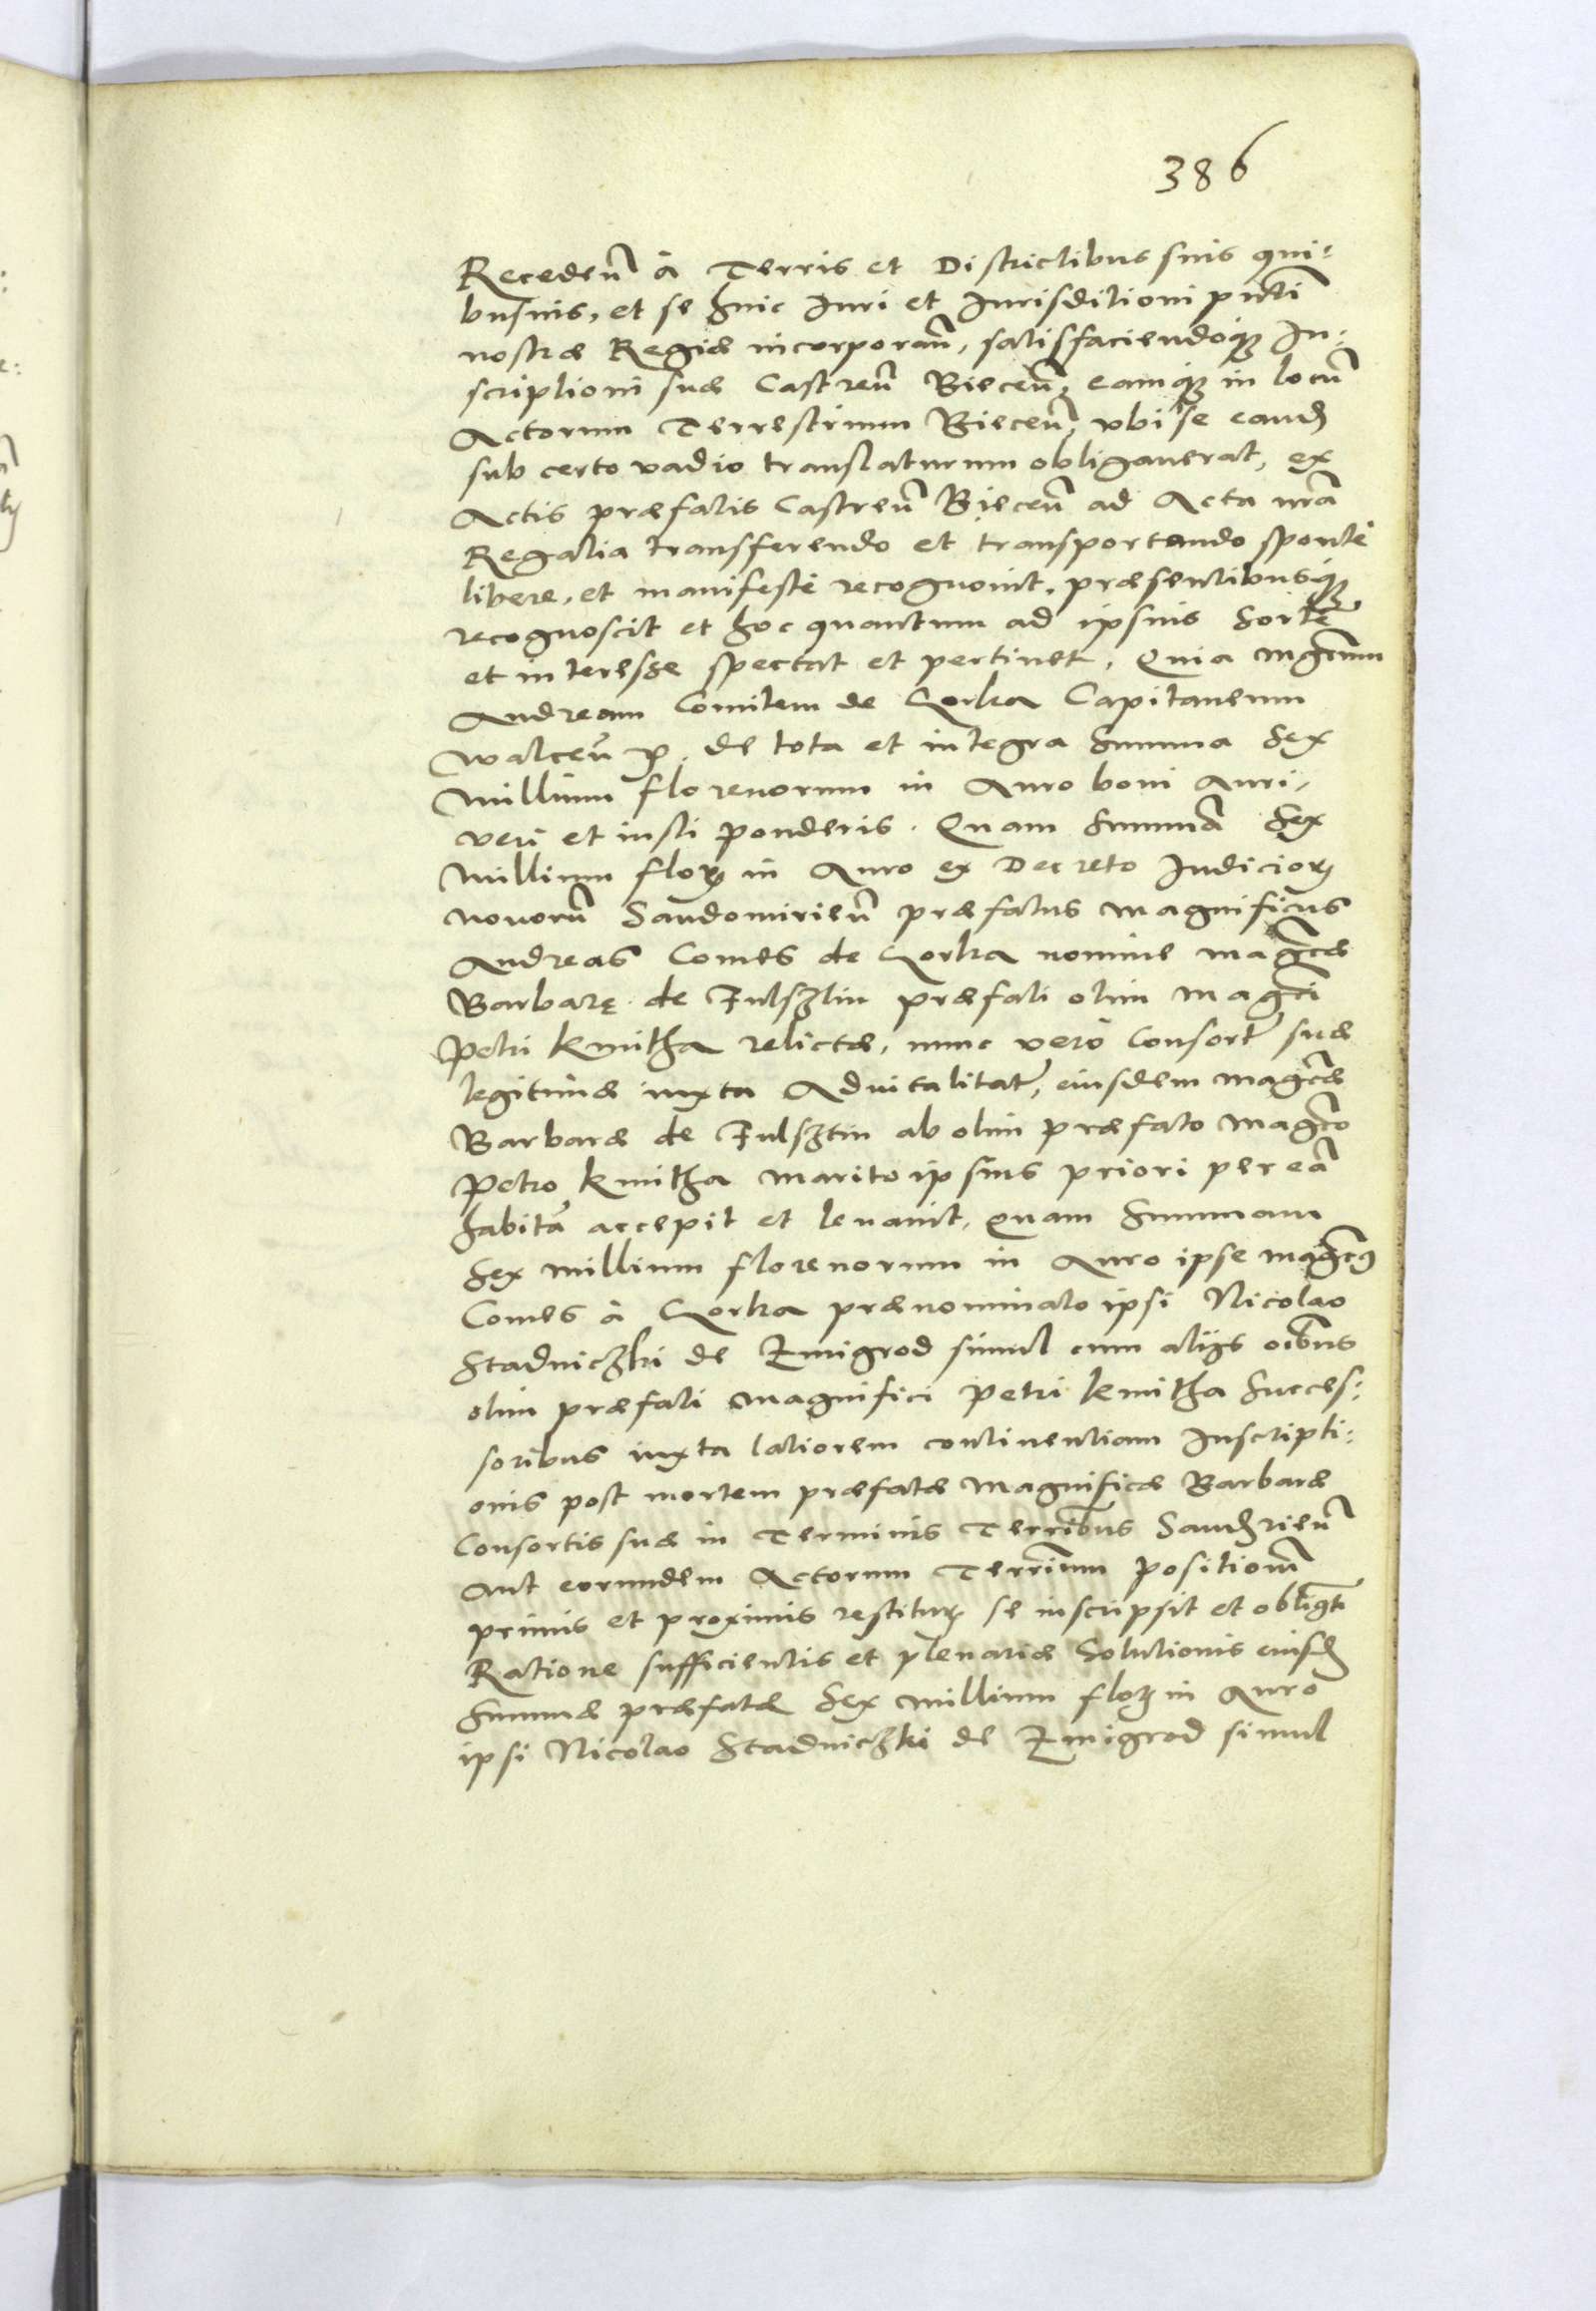 386
Recedeñ à Terris et Districtibus suis qui-
busuis, et se huic Iuri et Iurisditioni pñti
nostræ Regiæ incorporañ, satisfaciendoq₃ In-
scriptioni suæ Castreñ Bieceñ, eamq₃ in locũ
Actorum Terrestrium Bieceñ, vbi se eand
sub certo vadio translaturum obligauerat, ex
Actis præfatis Castreñ Bieceñ ad Acta nr̃a
Regalia transferendo et transportando sponte
libere, et manifeste recognouit, præsentibusq₃
recognoscit et hoc quantum ad ipsius Sortẽ
et interesse spectat et pertinet, Quia mgcũm
Andream Comitem de Gorka Capitaneum
Walceñ ꝛc. de tota et integra Summa Sex
Millium florenorum in Auro boni Auri
veri et iusti ponderis. Quam Summã Sex
Millium floꝝ in Auro ex Decreto Iudicioꝝ
nouorũ Sandomirieñ præfatus Magnificus
Andreas Comes de Gorka nomine Magcæ
Barbarę de Fulsztin præfati olim Magci
Petri Kmitha relictæ, nunc verò Consort̃ suæ
legitimæ iuxta Aduitalitat̃, eiusdem Magcæ
Barbaræ de Fulsztin ab olim præfato Magco
Petro Kmitha marito ipsius priori per eã
habitã accepit et leuauit, Quam Summam
Sex millium florenorum in Auro ipse Magcus
Comes à Gorka prænominato ipsi Nicolao
Stadniczki de Zmigrod simul cum alijs oĩbus
olim præfati Magnifici Petri Kmitha Succes-
soribus iuxta latiorem continentiam Inscripti-
onis post mortem præfatæ Magnificæ Barbaræ
Consortis suæ in Terminis Terrĩbus Sandrieñ
Aut eorundem Actorum Terrĩum positioñ
primis et proximis restituꝝ se inscripsit et obligt
Ratione sufficientis et plenariæ Solutionis eiusd
Summæ præfatæ Sex Millium floꝝ in Auro
ipsi Nicolao Stadniczki de Zmigrod simul